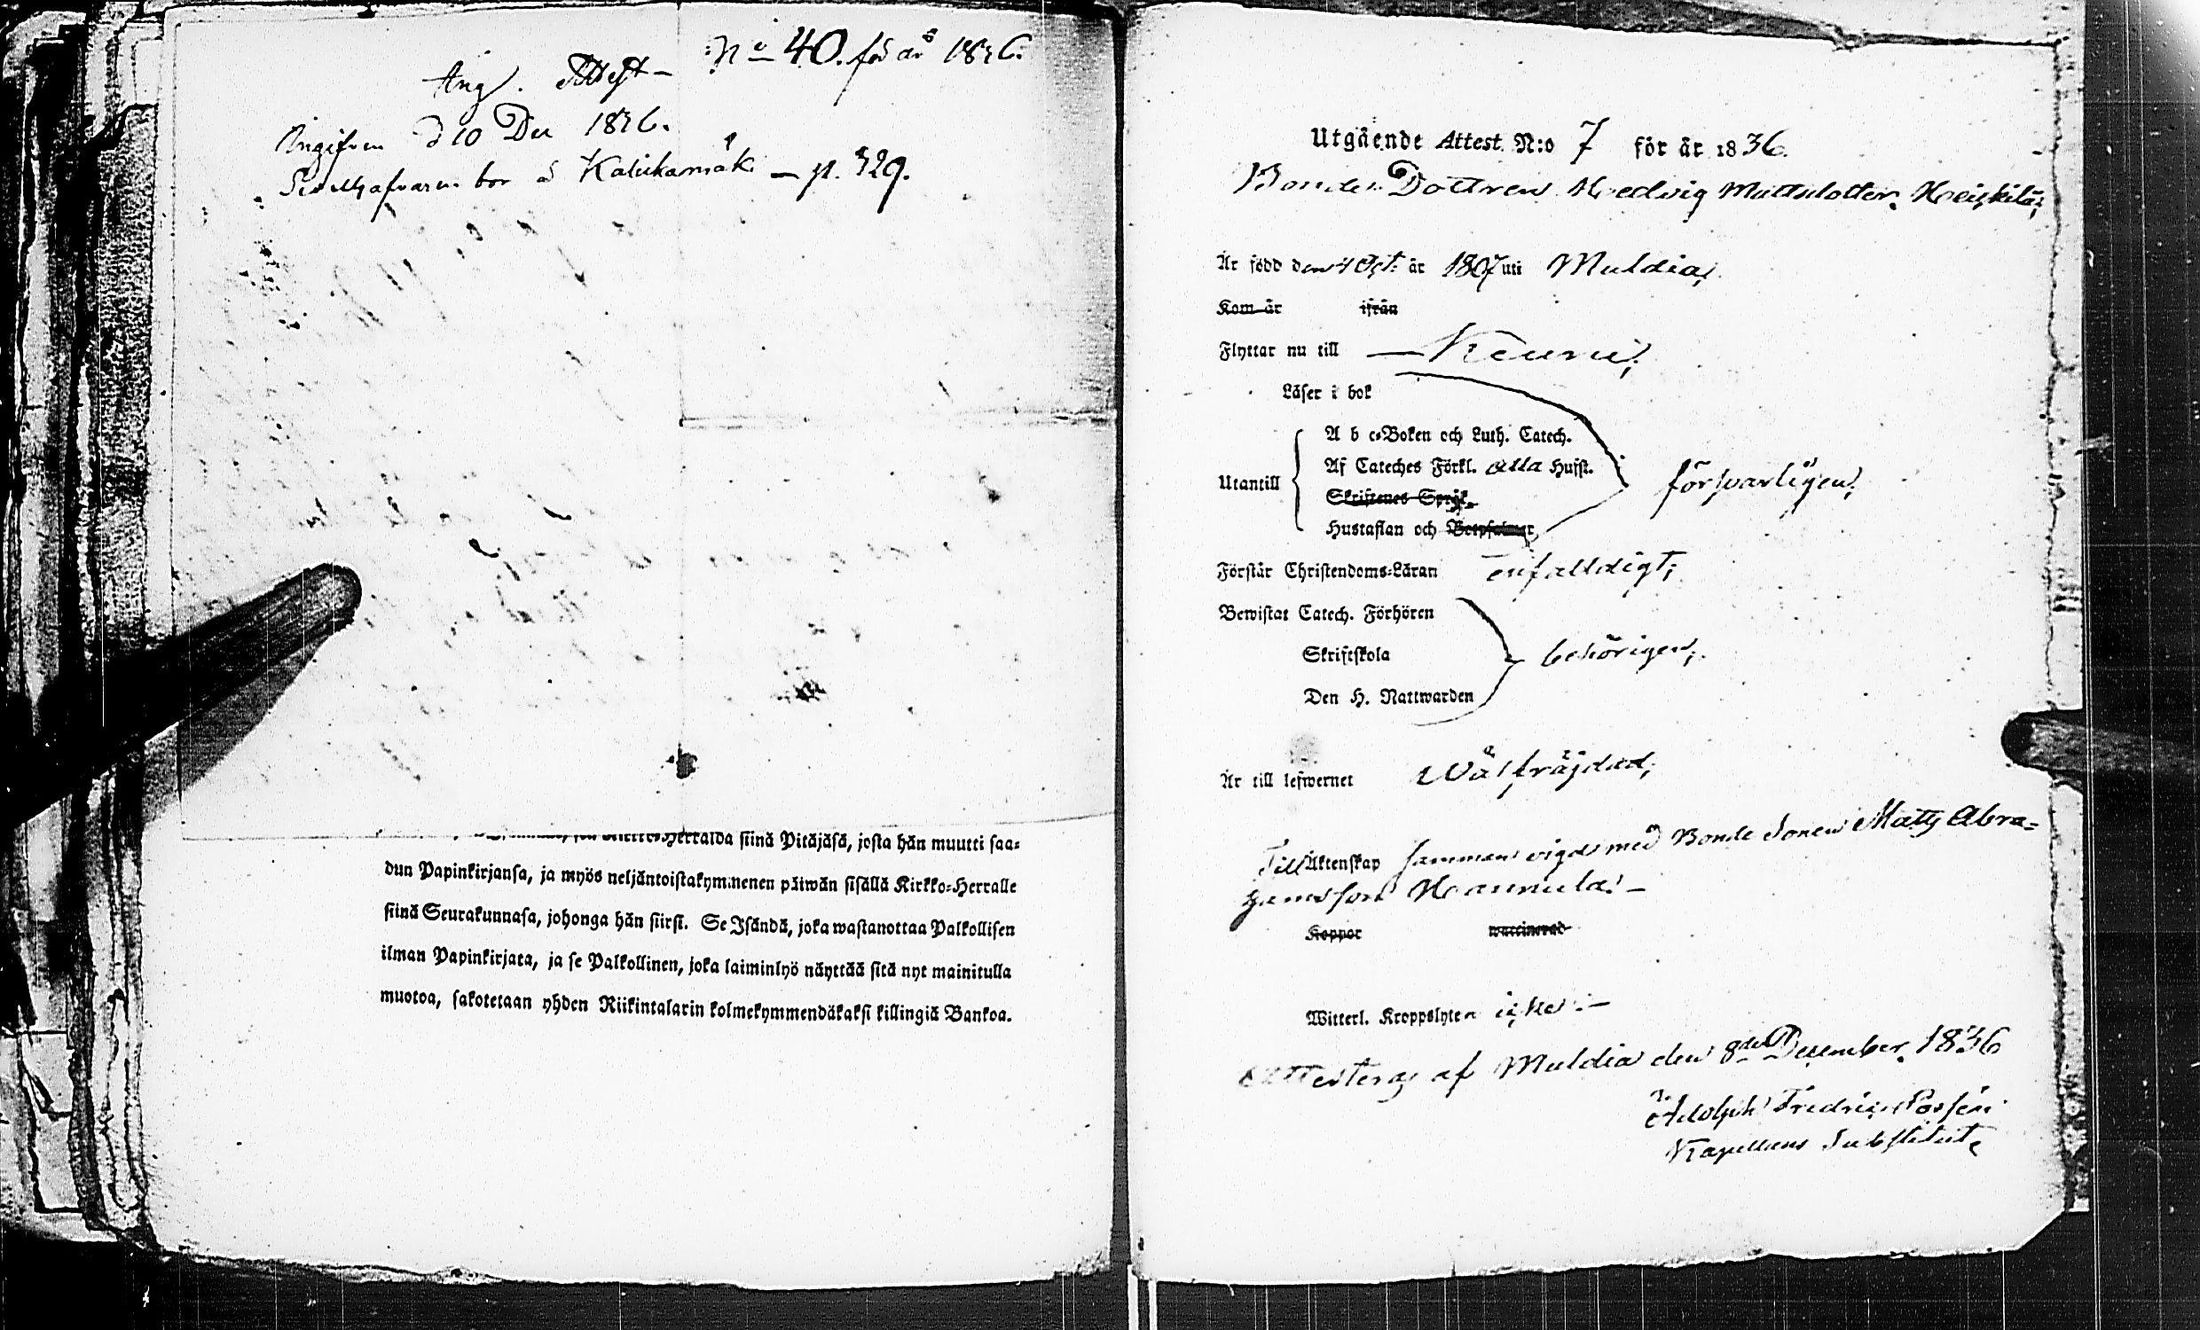 Ang. Attest — N:o 40. för år 1836.
Ingifven d 10 Dec 1836.
bor å Kaliikamäki — p. 329.
Herralda siinä Pitäjäsä, josta hän muutti saa-
dun Papinkirjansa, ja myös neljäntoistakymmenen päiwän sisällä Kirkko-Herralle
siinä Seurakunnasa, johonga hän siirsi. Se Isändä, joka wastanottaa Palkollisen
ilman Papinkirjata, ja se Palkollinen, joka laiminlyö näyttää sitä nyt mainitulla
muotoa, sakotetaan yhden Riikintalarin kolmekymmendäkaksi killingiä Bankoa.
Utgående Attest N:o 7 för år 1836.
Bonde Dottren Hedvig Mattsdotter Heiskilä;
Är född den 4 Oct: år 1807 uti Muldia;
Kom år ifrån
Flyttar nu till — Keuru;
Läser i bok
A b c-Boken och Luth. Catech.
Af Cateches Förkl. alla Hufst.
Utantill försvarligen;
Skriftenes Språk
Hustaflan och Botpsalmer,
Förstår Christendoms-Läran enfalldigt;
Bewistat Catech. Förhören
Skriftskola behörigen;
Den H. Nattwarden
Är till lefwernet Wälfräjdad;
Till Äktenskap sammanvigd med Bonde Sonen Matts Abra-
hamsson Hannula. —
Koppor waccinerad
Witterl. Kroppslyten icke: —
Attesteras af Muldia den 8de December 1836
Adolph Fredric
Kapellans Substitut